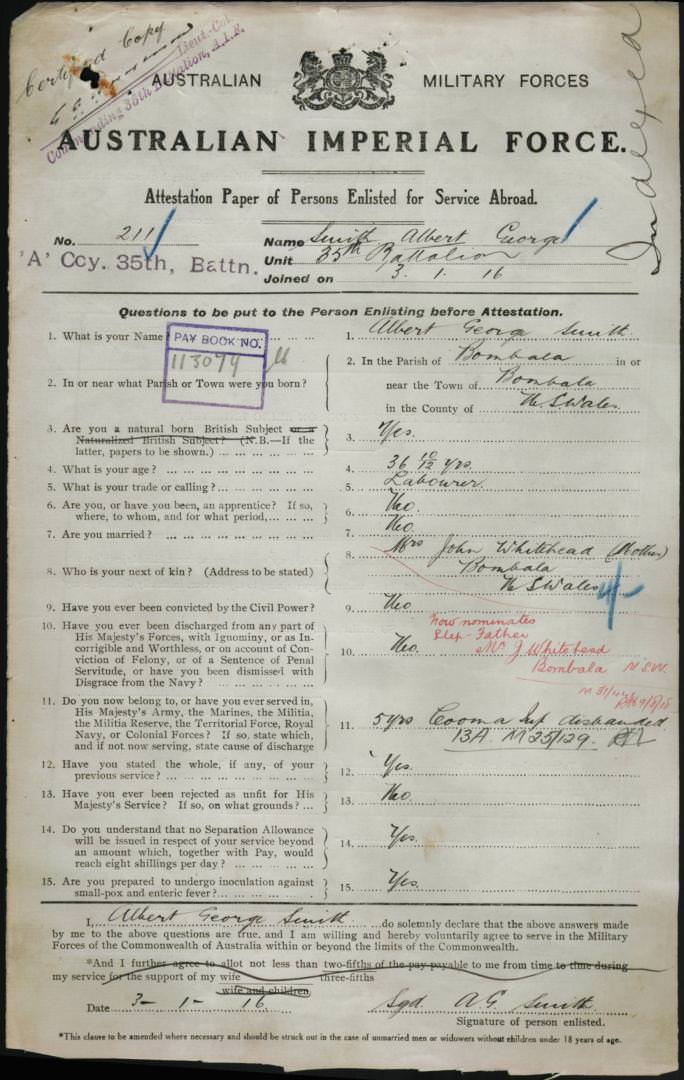 Certified Copy
Lieut-Col
Commanding 35th Battalion, A.I.F.
Indexed
AUSTRALIAN MILITARY FORCES
AUSTRALIAN IMPERIAL FORCE.
Attestation Paper of Persons Enlisted for Service Abroad.
No. 211 Name Smith Albert George
'A' Coy. 35th, Battn. Unit 35th Battalion
Joined on 3. 1. 16
Questions to be put to the Person Enlisting before Attestation.
1. What is your Name 1. Albert George Smith
PAY BOOK NO.
113079
2. In or near what Parish or Town were you born? 2. In the Parish of Bombala in or
near the Town of Bombala
in the County of N.S.Wales.
3. Are you a natural born British Subject or a
Naturalized British Subject? (N.B.—If the
latter, papers to be shown.) 3. Yes.
4. What is your age? 4. 36 10/12 yrs.
5. What is your trade or calling? 5. Labourer.
6. Are you, or have you been, an apprentice? If so,
where, to whom, and for what period, 6. No.
7. Are you married? 7. No.
8. Who is your next of kin? (Address to be stated) 8. Mrs John Whitehead (Mother)
Bombala
N.S.Wales
9. Have you ever been convicted by the Civil Power? 9. No
Now nominates
Step-Father
Mr J Whitehead
Bombala N.S.W.
10. Have you ever been discharged from any part of
His Majesty's Forces, with Ignominy, or as In-
corrigible and Worthless, or on account of Con-
viction of Felony, or of a Sentence of Penal
Servitude, or have you been dismissed with
Disgrace from the Navy? 10. No.
11. Do you now belong to, or have you ever served in,
His Majesty's Army, the Marines, the Militia,
the Militia Reserve, the Territorial Force, Royal
Navy, or Colonial Forces? If so, state which,
and if not now serving, state cause of discharge 11. 5 yrs Cooma Inf disbanded
13A. M 25/129.
12. Have you stated the whole, if any, of your
previous service? 12. Yes.
13. Have you ever been rejected as unfit for His
Majesty's Service? If so, on what grounds? 13. No.
14. Do you understand that no Separation Allowance
will be issued in respect of your service beyond
an amount which, together with Pay, would
reach eight shillings per day? 14. Yes.
15. Are you prepared to undergo inoculation against
small-pox and enteric fever? 15. Yes.
I, Albert George Smith do solemnly declare that the above answers made
by me to the above questions are true, and I am willing and hereby voluntarily agree to serve in the Military
Forces of the Commonwealth of Australia within or beyond the limits of the Commonwealth.
*And I further agree to allot not less than two-fifths of the pay payable to me from time to time during
my service for the support of my wife three-fifths
wife and children
Date 3- 1- 16 Sgd A G Smith
Signature of person enlisted.
*This clause to be amended where necessary and should be struck out in the case of unmarried men or widowers without children under 18 years of age.